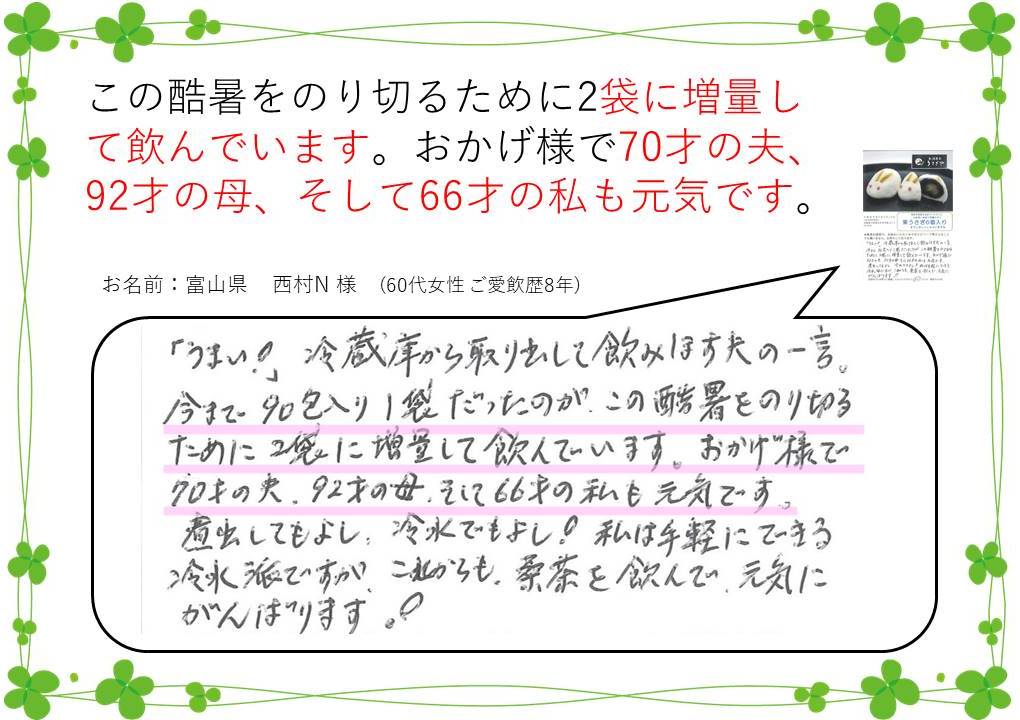 この酷暑をのり切るために2袋に増量し
て飲んでいます。おかげ様で70才の夫、
92才の母、そして66才の私も元気です。
お名前：富山県　西村N 様　(60代女性 ご愛飲歴8年)
東うさぎ6個入り
「うまい!」冷蔵庫から取り出して飲みほす夫の一言。
今まで90包入り1袋だったのが、この酷暑をのり切る
ために2袋に増量して飲んでいます。おかげ様で
70才の夫、92才の母、そして66才の私も元気です。
煮出してもよし、冷水でもよし! 私は手軽にできる
冷水派ですが、これからも、桑茶を飲んで、元気に
がんばります。!